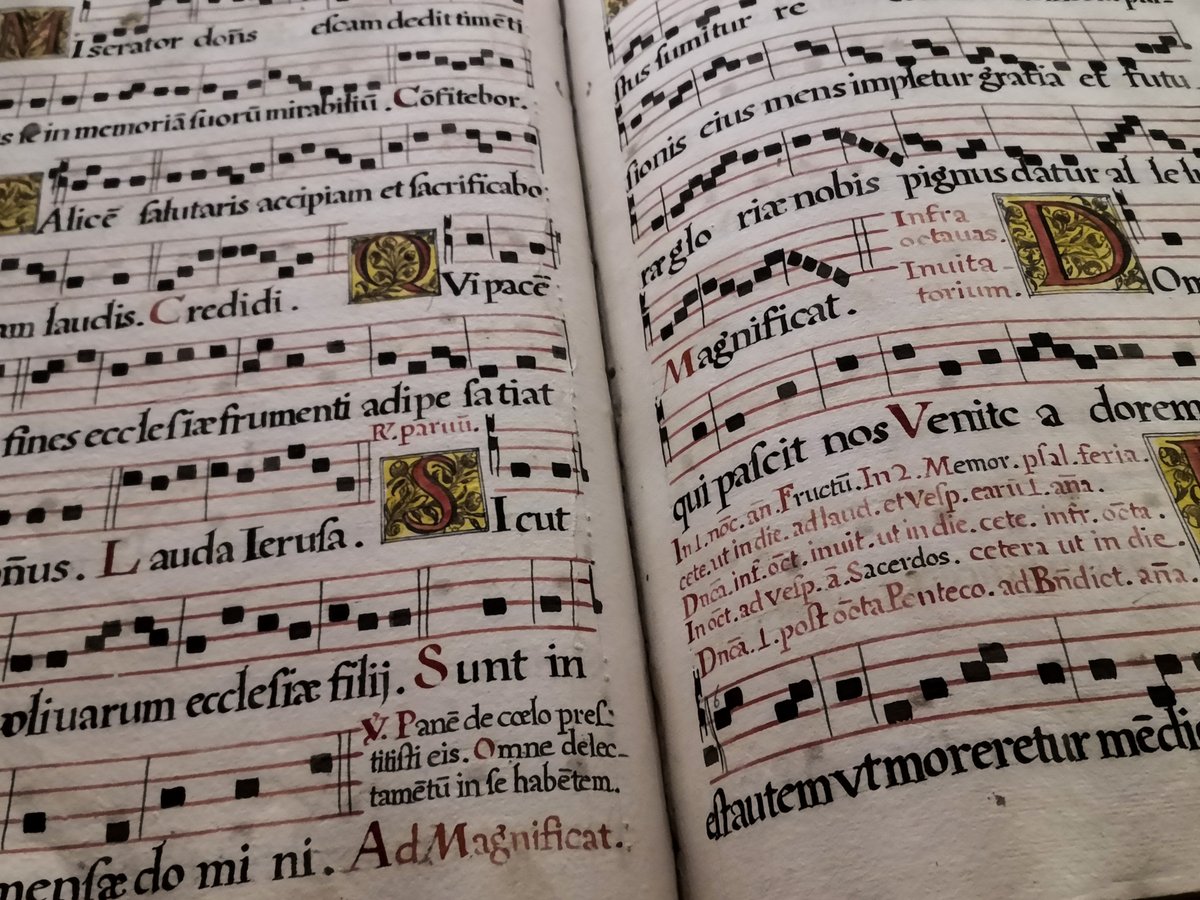 Miserator dons escam dedit timēti
s se in memoriā suorū mirabiliū. Cōfitebor.
Calicē salutaris accipiam et sacrificabo
am laudis. Credidi. Qui pacē
fines ecclesiæ frumenti adipe satiat
R. paruū.
ñus. Lauda Ierusa. Sicut
oliuarum ecclesiæ filij. Sunt in
℣. Panē de cœlo pres-
titisti eis. Omne delec-
tamētū in se habētem.
mensæ domini. Ad Magnificat.
stus sumitur re
sionis eius mens impletur gratia et futu
ræ gloriæ nobis pignus datur al lelu
Infra
octauas.
Inuita-
torium.
Magnificat. Dom
qui pascit nos Venite adorem
In 1. noc. an. Fructū. In 2. Memor. psal. feria.
cete. ut in die. ad laud. et Vesp. earū 1. ana.
Dnca. inf. oct. inuit. ut in die. cete. infr. octa.
In oct. ad vesp. ā. Sacerdos. cetera ut in die.
Dnca. 1. post octa Penteco. ad Bñdict. aña.
est autem vt moreretur mēdic